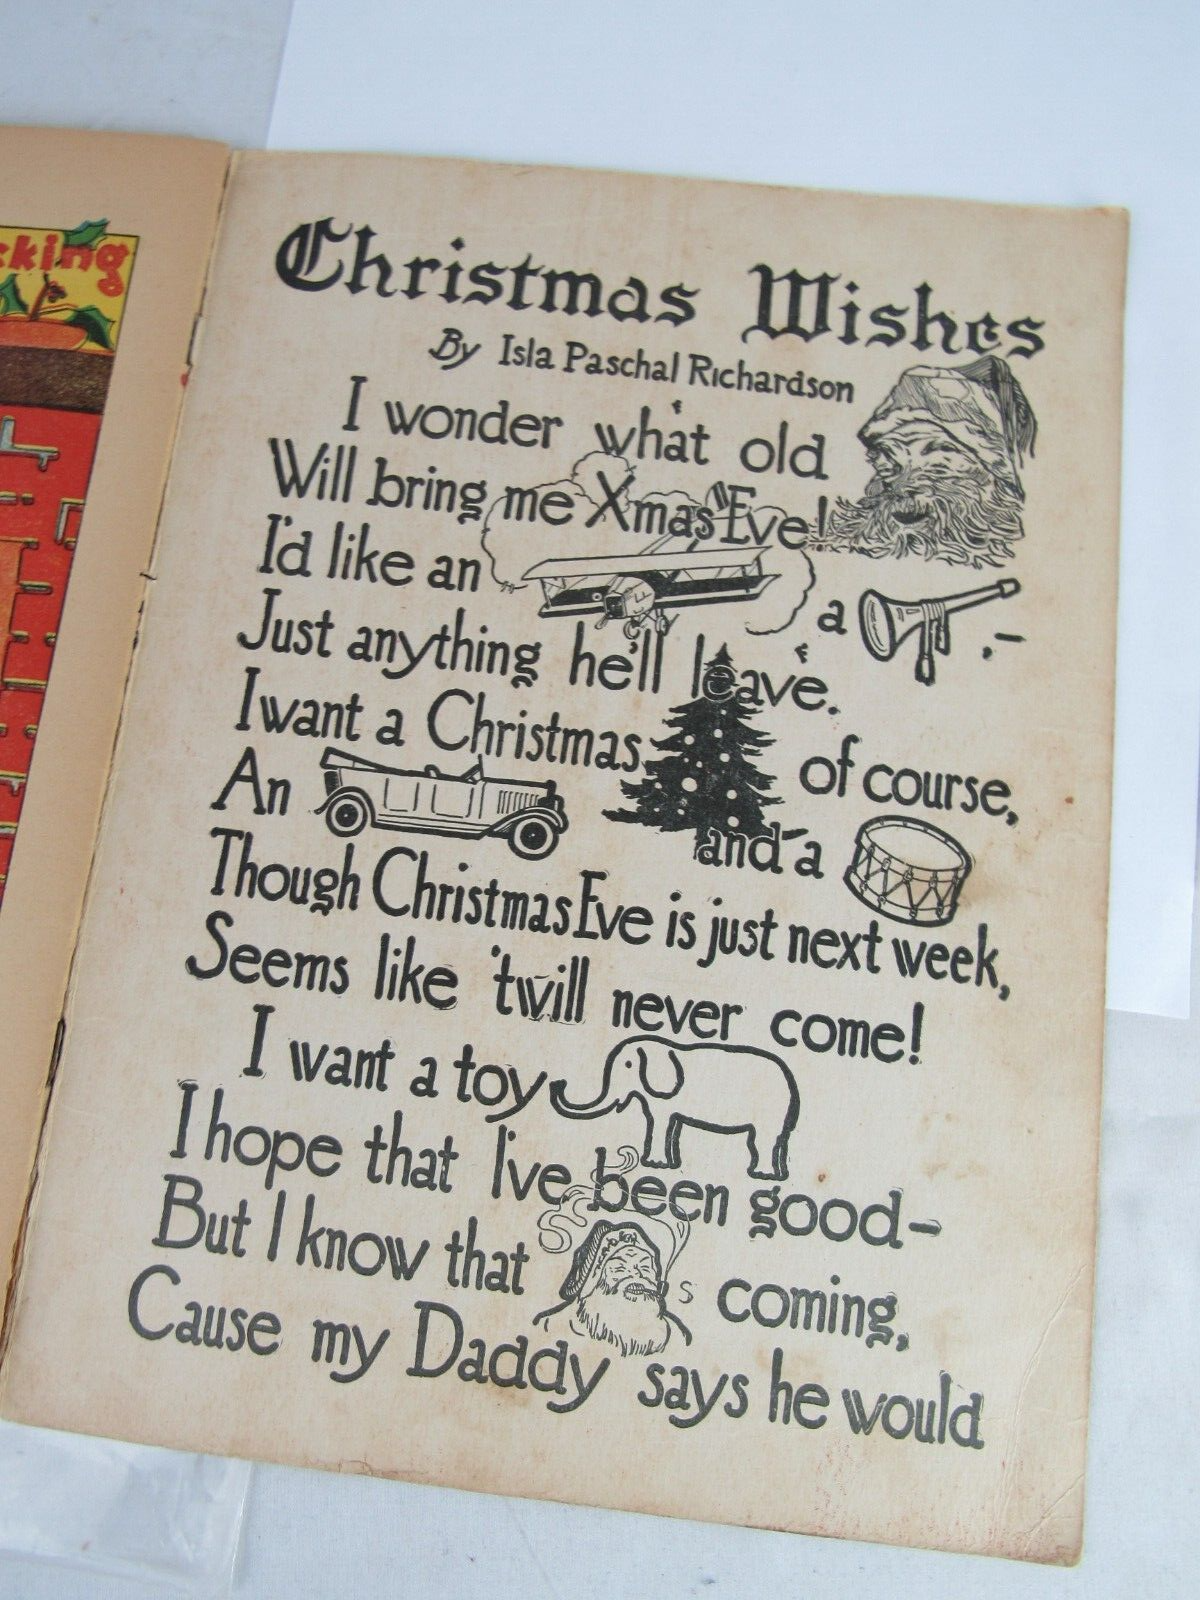 cking
Christmas Wishes
By Isla Paschal Richardson
I wonder what old
Will bring me Xmas Eve!
I'd like an a .—
Just anything he'll leave.
I want a Christmas of course,
An and a
Though Christmas Eve is just next week,
Seems like 'twill never come!
I want a toy
I hope that I've been good—
But I know that s coming,
Cause my Daddy says he would